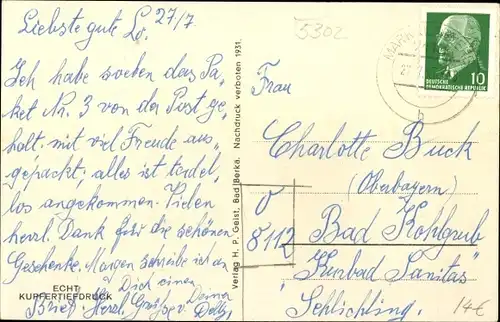 27/7
Liebste gute Lo.
Ich habe soeben das Pa-
ket Nr. 3 von der Post ge-
holt mit viel Freude aus-
gepackt, alles ist tadel-
los angekommen. Vielen
herzl. Dank für die schönen
Geschenke. Morgen schreibe ich an
Dich einen
Brief. Herzl. Grüße v. Deiner
ECHT
KUPFERTIEFDRUCK
Verlag H. P. Geist, Bad Berka. Nachdruck verboten 1931.
5302
DEUTSCHE
DEMOKRATISCHE REPUBLIK
10
b
Frau
Charlotte Buck
(Oberbayern)
8112
Bad Kohlgrub
"Kurbad Sanitas"
Schlichling.
14€